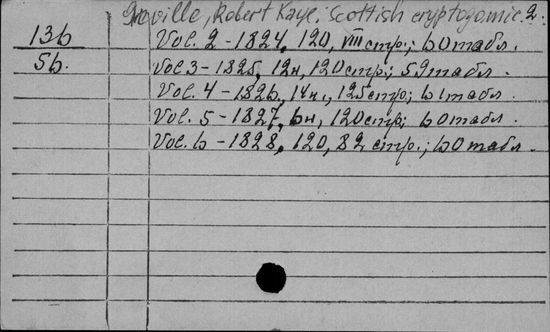 Groville, Robert Kaye. Scottish cryptogamic. 2.
13b Vol. 2 - 1824, 120, VIII стр.; 60 табл.
5b. Vol 3 - 1825, 12н, 120 стр.; 59 табл.
Vol. 4 - 1826, 125 стр.; 61 табл.
Vol. 5 - 1827, 6н, 120 стр.; 60 табл.
Vol. 6 - 1828, 120, 82 стр.; 60 табл.